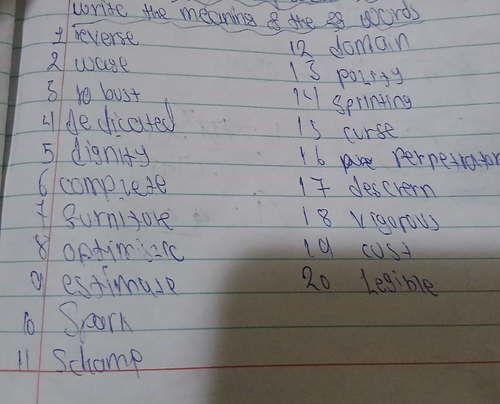 write the meaning of the ff words
1 reverse
2 wage
3 robust
4 dedicated
5 dignity
6 complete
7 furniture
8 optimistic
9 estimate
10 Spark
11 Schamp
12 domain
13 polity
14 Sprinting
15 curse
16 perpetrator
17 descrern
18 vigorous
19 cust
20 Legible